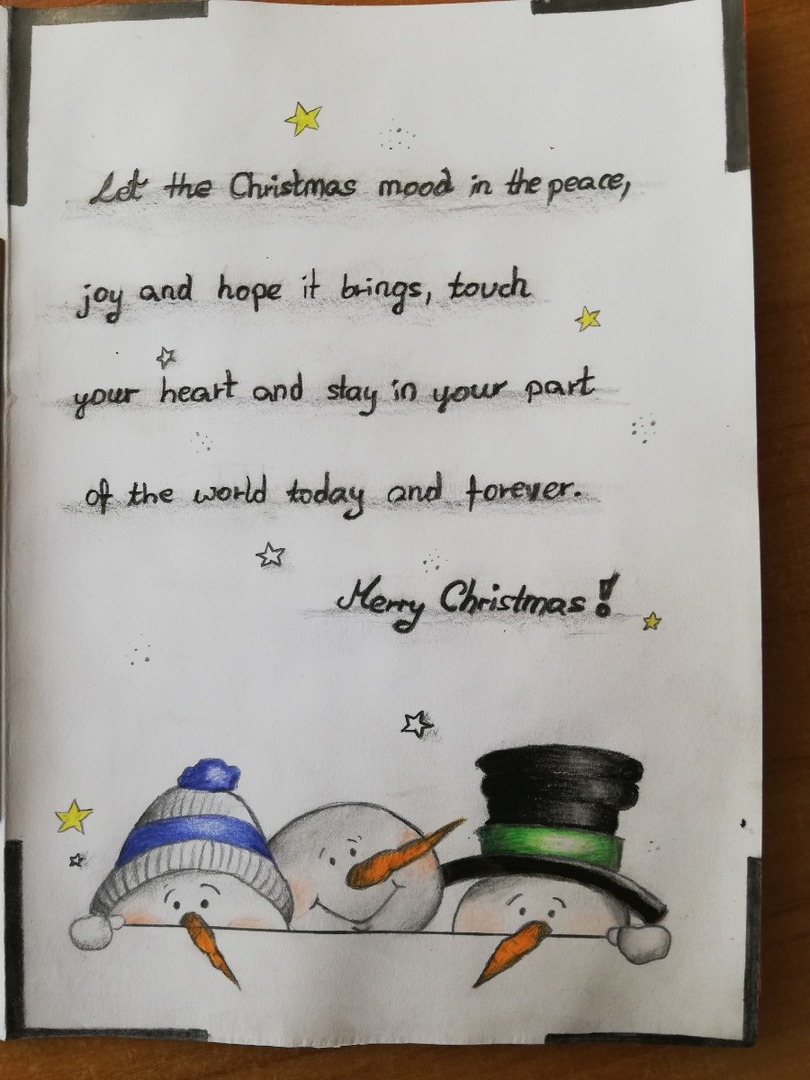 Let the Christmas mood in the peace,
joy and hope it brings, touch
your heart and stay in your part
of the world today and forever.
Merry Christmas!